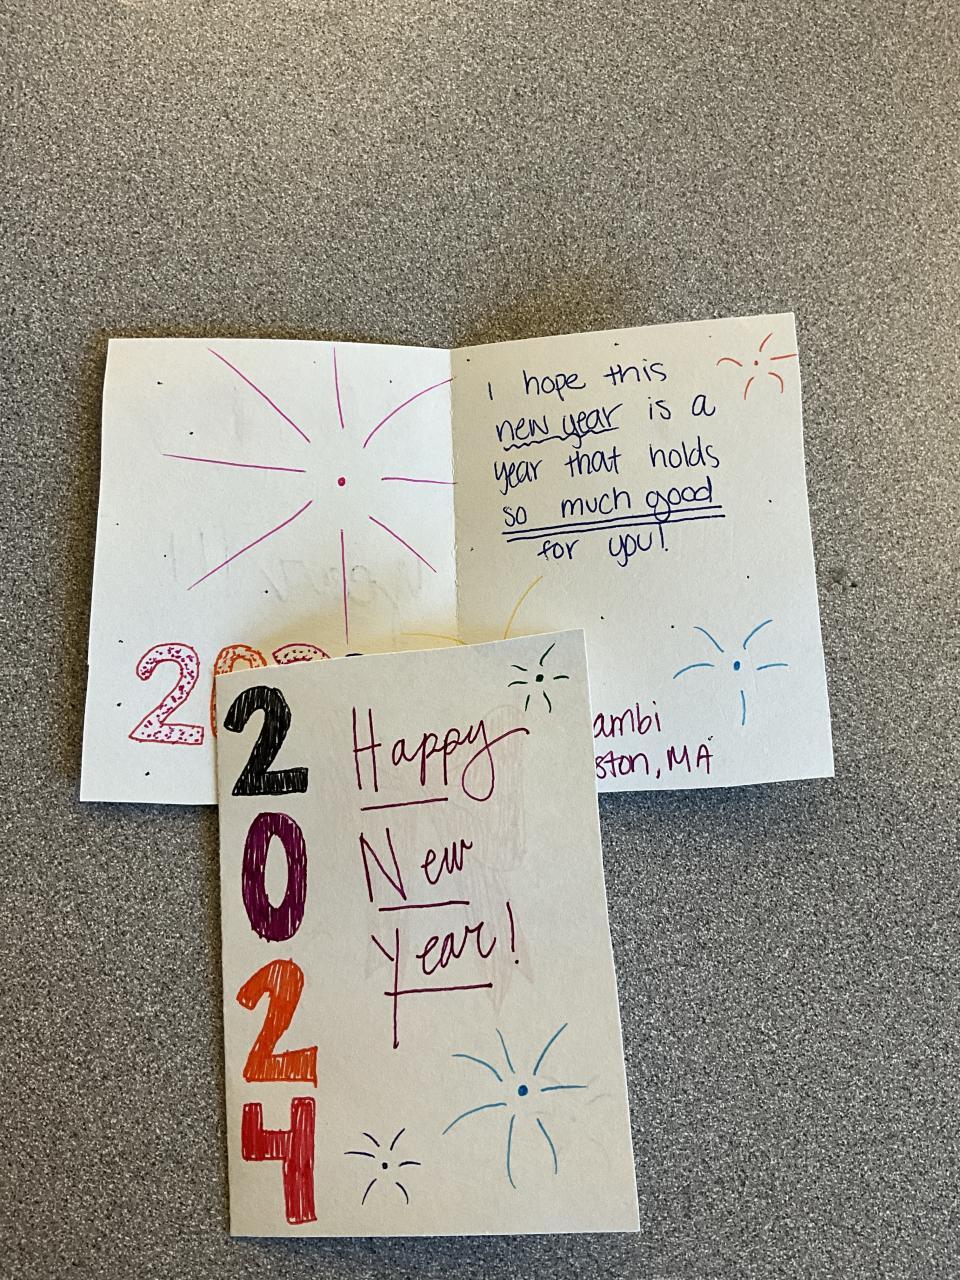 I hope this
new year is a
year that holds
so much good
for you!
202
ambi
ston, MA
2
0
2
4
Happy
New
Year!